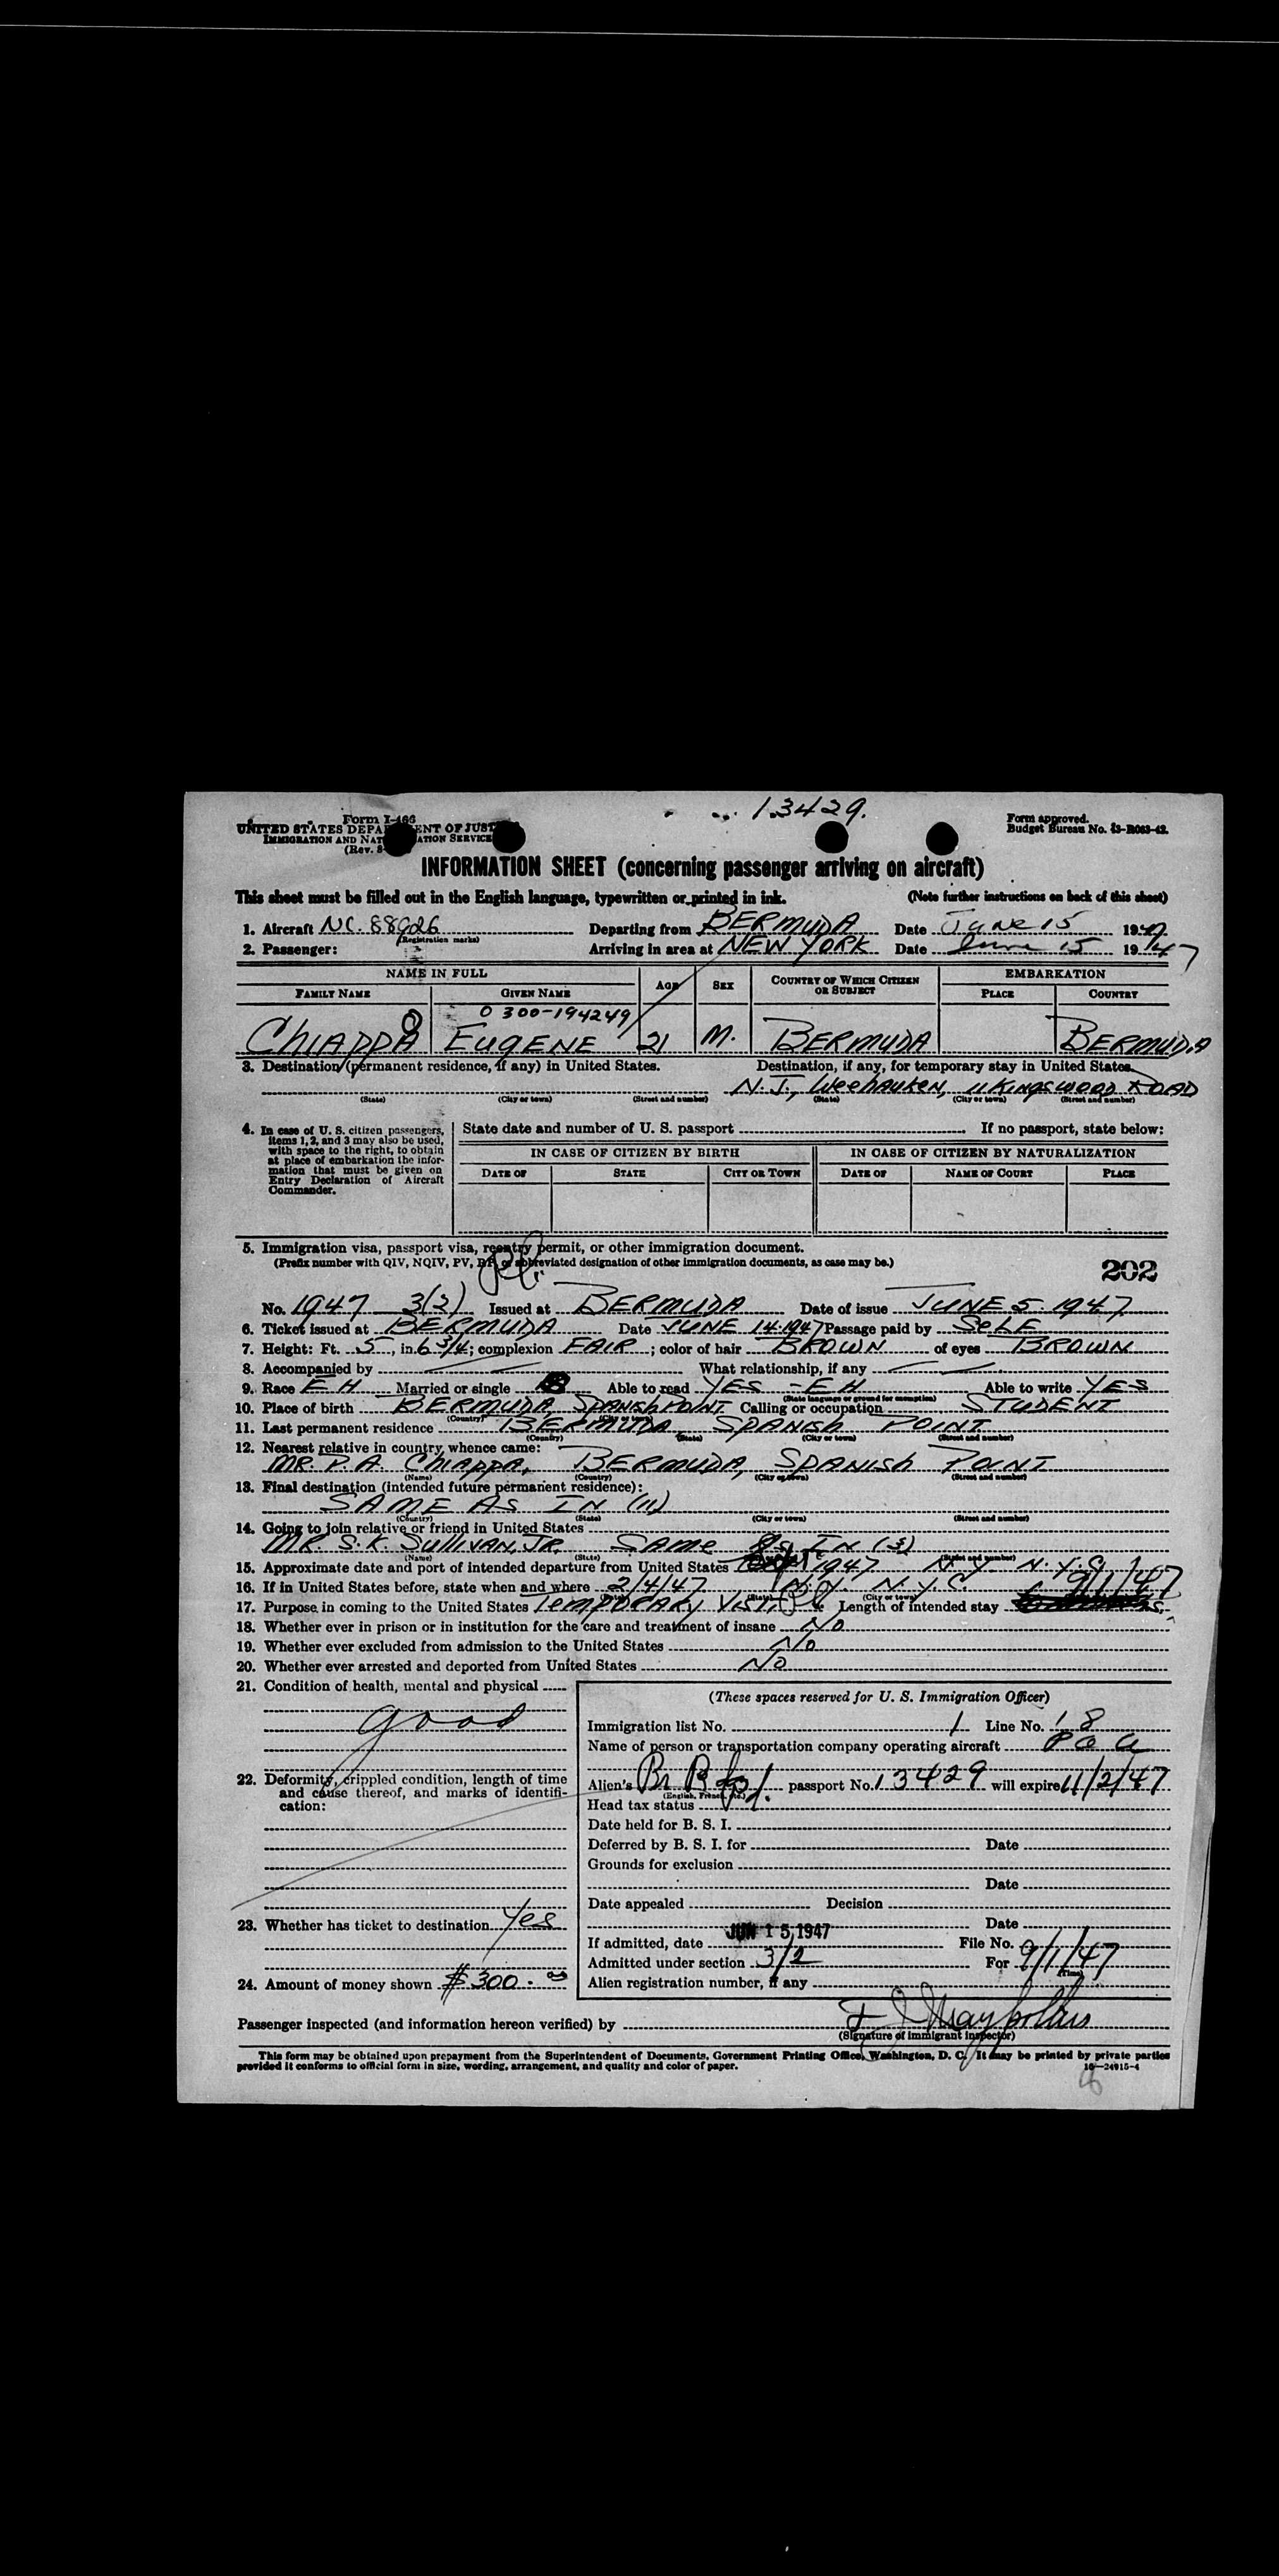 13429.
Form I-466
UNITED STATES DEPARTMENT OF JUSTICE
IMMIGRATION AND NATURALIZATION SERVICE
(Rev.
Form approved.
Budget Bureau No. 43-R063-42.
INFORMATION SHEET (concerning passenger arriving on aircraft)
This sheet must be filled out in the English language, typewritten or printed in ink. (Note further instructions on back of this sheet)
1. Aircraft NC. 88926 Departing from BERMUDA Date June 15 1947
(Registration marks)
2. Passenger: Arriving in area at NEW YORK Date June 15 1947
NAME IN FULL AGE SEX COUNTRY OF WHICH CITIZEN OR SUBJECT EMBARKATION
FAMILY NAME GIVEN NAME PLACE COUNTRY
0 300-194249
CHIAPPA EUGENE 21 M. BERMUDA BERMUDA
3. Destination (permanent residence, if any) in United States. Destination, if any, for temporary stay in United States.
N.J., Weehauken, 11 Kingswood ROAD
(State) (City or town) (Street and number) (State) (City or town) (Street and number)
4. In case of U. S. citizen passengers, items 1, 2, and 3 may also be used, with space to the right, to obtain at place of embarkation the information that must be given on Entry Declaration of Aircraft Commander.
State date and number of U. S. passport If no passport, state below:
IN CASE OF CITIZEN BY BIRTH IN CASE OF CITIZEN BY NATURALIZATION
DATE OF STATE CITY OR TOWN DATE OF NAME OF COURT PLACE
5. Immigration visa, passport visa, reentry permit, or other immigration document.
(Prefix number with QIV, NQIV, PV, RP, or abbreviated designation of other immigration documents, as case may be.)
202
No. 1947 3(2) Issued at BERMUDA Date of issue JUNE 5. 1947
6. Ticket issued at BERMUDA Date JUNE 14.1947 Passage paid by SELF
7. Height: Ft. 5, in. 6 3/4; complexion FAIR; color of hair BROWN of eyes BROWN
8. Accompanied by What relationship, if any
9. Race E H Married or single Able to read YES - E H Able to write YES
(State language or ground for exemption)
10. Place of birth BERMUDA, SPANISH POINT Calling or occupation STUDENT
(Country) (City or town)
11. Last permanent residence BERMUDA, SPANISH POINT
(Country) (State) (City or town) (Street and number)
12. Nearest relative in country whence came:
MR. P. A. CHIAPPA, BERMUDA, SPANISH POINT
(Name) (Country) (City or town) (Street and number)
13. Final destination (intended future permanent residence):
SAME AS IN (11)
(Country) (State) (City or town) (Street and number)
14. Going to join relative or friend in United States
MR S. K. SULLIVAN, JR. SAME AS IN (3)
(Name) (State) (Street and number)
15. Approximate date and port of intended departure from United States Sept 1 1947 N.Y. N.Y.C.
16. If in United States before, state when and where 2/4/47 N.Y. N.Y.C. 9/1/47
(Date) (State) (City or town)
17. Purpose in coming to the United States TEMPORARY VISIT Length of intended stay
18. Whether ever in prison or in institution for the care and treatment of insane NO
19. Whether ever excluded from admission to the United States No
20. Whether ever arrested and deported from United States No
21. Condition of health, mental and physical
good
22. Deformity, crippled condition, length of time and cause thereof, and marks of identification:
23. Whether has ticket to destination Yes
24. Amount of money shown $300.00
(These spaces reserved for U. S. Immigration Officer)
Immigration list No. 1 Line No. 18
Name of person or transportation company operating aircraft P a a
Alien's Br passport No. 13429 will expire 11/2/47
(English, French, etc.)
Head tax status
Date held for B. S. I.
Deferred by B. S. I. for Date
Grounds for exclusion
Date
Date appealed Decision
Date
If admitted, date JUN 15 1947 File No.
Admitted under section 3/2 For 9/1/47
(Time)
Alien registration number, if any
Passenger inspected (and information hereon verified) by
(Signature of immigrant inspector)
This form may be obtained upon prepayment from the Superintendent of Documents, Government Printing Office, Washington, D. C. It may be printed by private parties
provided it conforms to official form in size, wording, arrangement, and quality and color of paper. 16—24915-4